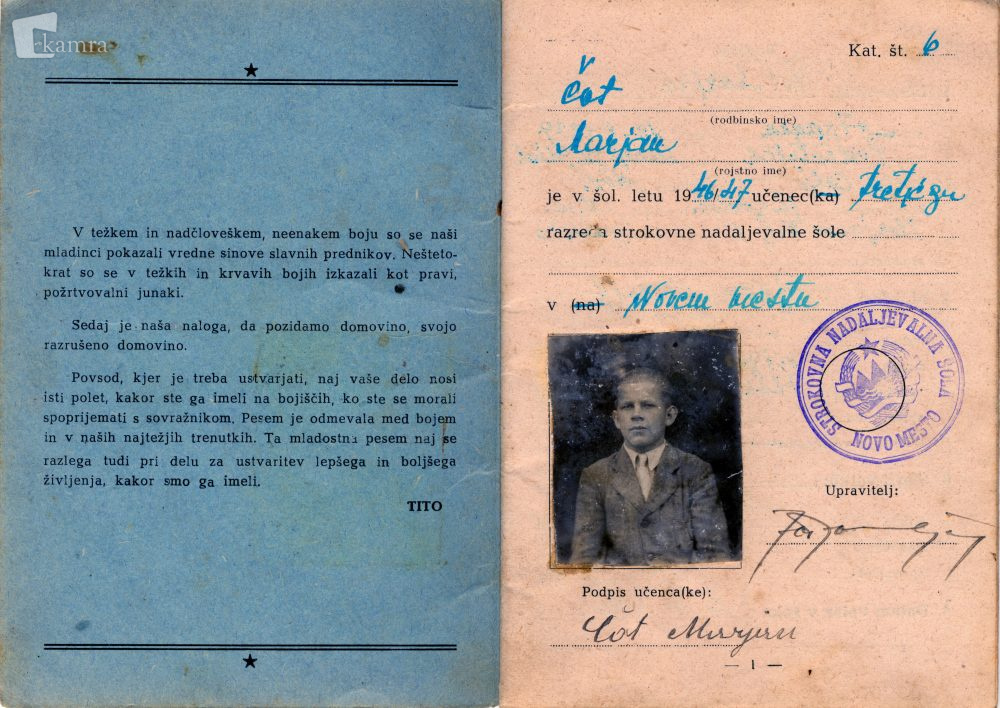 kamra
V težkem in nadčloveškem, neenakem boju so se naši
mladinci pokazali vredne sinove slavnih prednikov. Nešteto-
krat so se v težkih in krvavih bojih izkazali kot pravi,
požrtvovalni junaki.
Sedaj je naša naloga, da pozidamo domovino, svojo
razrušeno domovino.
Povsod, kjer je treba ustvarjati, naj vaše delo nosi
isti polet, kakor ste ga imeli na bojiščih, ko ste se morali
spoprijemati s sovražnikom. Pesem je odmevala med bojem
in v naših najtežjih trenutkih. Ta mladostna pesem naj se
razlega tudi pri delu za ustvaritev lepšega in boljšega
življenja, kakor smo ga imeli.
TITO
Kat. št. 6
Čot
(rodbinsko ime)
Marjan
(rojstno ime)
je v šol. letu 1946/47 učenec(ka) tretjega
razreda strokovne nadaljevalne šole
v (na) Novem mestu
STROKOVNA NADALJEVALNA ŠOLA
NOVO MESTO
Upravitelj:
Podpis učenca(ke):
Čot Marjan
— 1 —